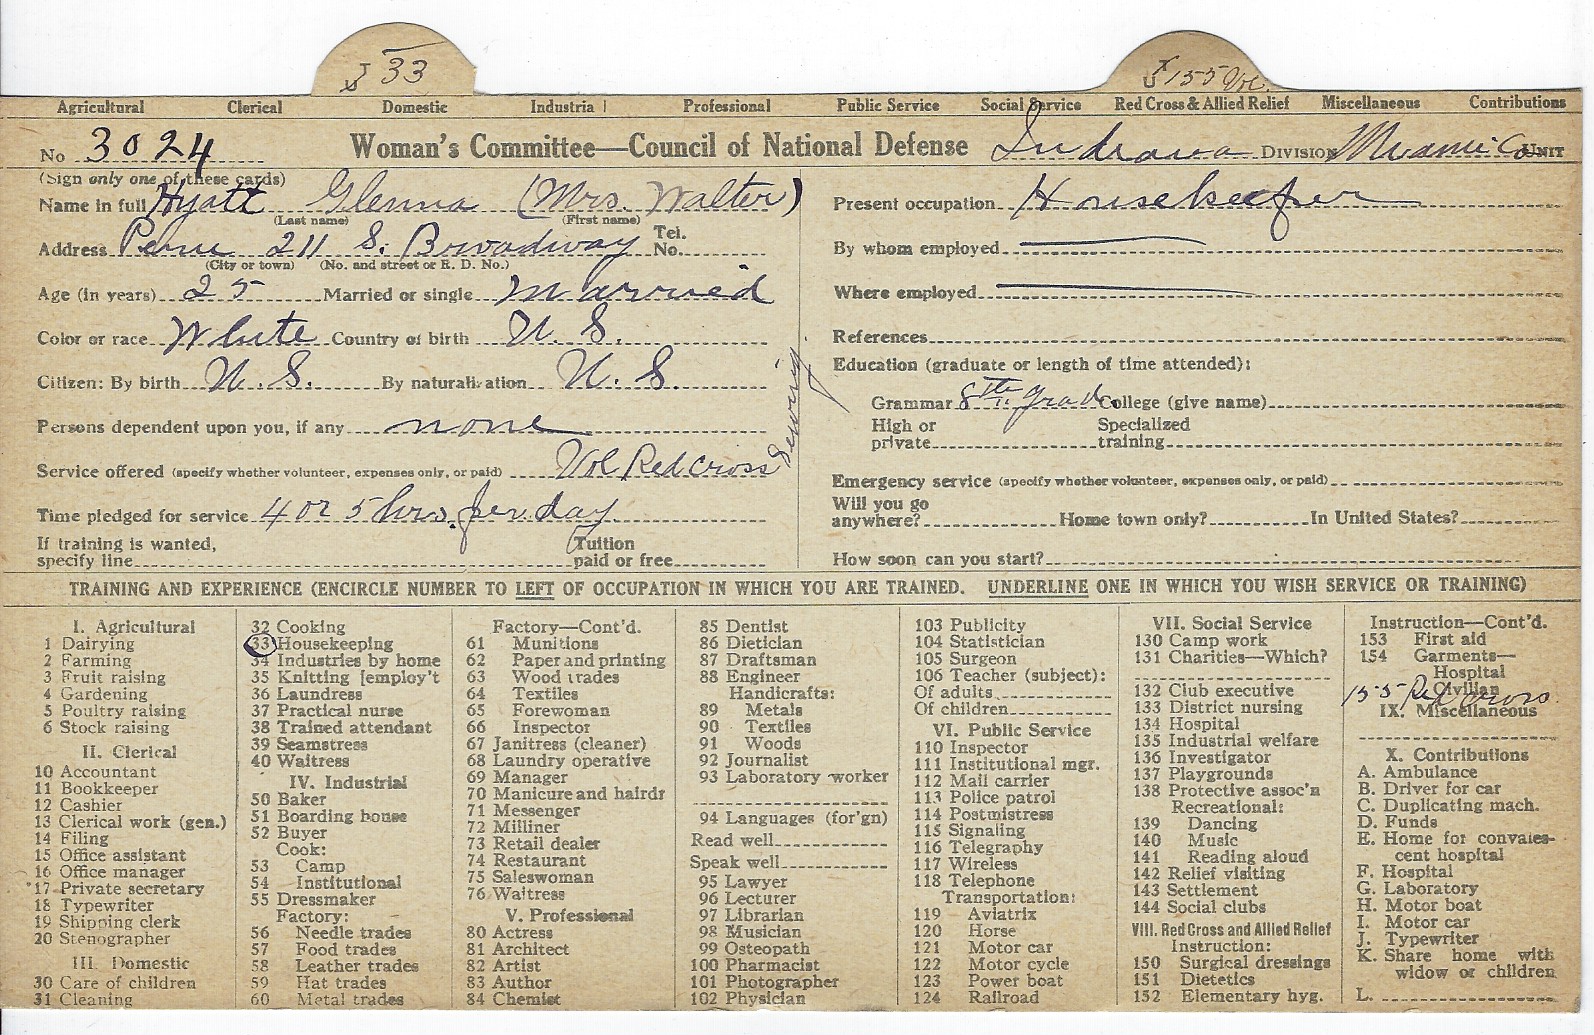 33
155 Vol.
Agricultural Clerical Domestic Industrial Professional Public Service Social Service Red Cross & Allied Relief Miscellaneous Contributions
No 3024 Woman's Committee—Council of National Defense Indiana DIVISION Miami Co UNIT
(Sign only one of these cards)
Name in full Hyatt Glenna (Mrs. Walter)
(Last name) (First name)
Address Peru 211 S. Broadway Tel. No.
(City or town) (No. and street or R. D. No.)
Age (in years) 25 Married or single Married
Color or race White Country of birth U. S.
Citizen: By birth U. S. By naturalization U. S.
Persons dependent upon you, if any none
Service offered (specify whether volunteer, expenses only, or paid) Vol Red Cross Sewing.
Time pledged for service 4 or 5 hrs. per day
If training is wanted, specify line Tuition paid or free
Present occupation Housekeeper
By whom employed
Where employed
References
Education (graduate or length of time attended):
Grammar 8th grad. College (give name)
High or private Specialized training
Emergency service (specify whether volunteer, expenses only, or paid)
Will you go anywhere? Home town only? In United States?
How soon can you start?
TRAINING AND EXPERIENCE (ENCIRCLE NUMBER TO LEFT OF OCCUPATION IN WHICH YOU ARE TRAINED. UNDERLINE ONE IN WHICH YOU WISH SERVICE OR TRAINING)
I. Agricultural
1 Dairying
2 Farming
3 Fruit raising
4 Gardening
5 Poultry raising
6 Stock raising
II. Clerical
10 Accountant
11 Bookkeeper
12 Cashier
13 Clerical work (gen.)
14 Filing
15 Office assistant
16 Office manager
17 Private secretary
18 Typewriter
19 Shipping clerk
20 Stenographer
III. Domestic
30 Care of children
31 Cleaning
32 Cooking
33 Housekeeping
34 Industries by home
35 Knitting [employ't
36 Laundress
37 Practical nurse
38 Trained attendant
39 Seamstress
40 Waitress
IV. Industrial
50 Baker
51 Boarding house
52 Buyer
Cook:
53 Camp
54 Institutional
55 Dressmaker
Factory:
56 Needle trades
57 Food trades
58 Leather trades
59 Hat trades
60 Metal trades
Factory—Cont'd.
61 Munitions
62 Paper and printing
63 Wood trades
64 Textiles
65 Forewoman
66 Inspector
67 Janitress (cleaner)
68 Laundry operative
69 Manager
70 Manicure and hairdr
71 Messenger
72 Milliner
73 Retail dealer
74 Restaurant
75 Saleswoman
76 Waitress
V. Professional
80 Actress
81 Architect
82 Artist
83 Author
84 Chemist
85 Dentist
86 Dietician
87 Draftsman
88 Engineer
Handicrafts:
89 Metals
90 Textiles
91 Woods
92 Journalist
93 Laboratory worker
94 Languages (for'gn)
Read well
Speak well
95 Lawyer
96 Lecturer
97 Librarian
98 Musician
99 Osteopath
100 Pharmacist
101 Photographer
102 Physician
103 Publicity
104 Statistician
105 Surgeon
106 Teacher (subject):
Of adults
Of children
VI. Public Service
110 Inspector
111 Institutional mgr.
112 Mail carrier
113 Police patrol
114 Postmistress
115 Signaling
116 Telegraphy
117 Wireless
118 Telephone
Transportation:
119 Aviatrix
120 Horse
121 Motor car
122 Motor cycle
123 Power boat
124 Railroad
VII. Social Service
130 Camp work
131 Charities—Which?
132 Club executive
133 District nursing
134 Hospital
135 Industrial welfare
136 Investigator
137 Playgrounds
138 Protective assoc'n
Recreational:
139 Dancing
140 Music
141 Reading aloud
142 Relief visiting
143 Settlement
144 Social clubs
VIII. Red Cross and Allied Relief
Instruction:
150 Surgical dressings
151 Dietetics
152 Elementary hyg.
Instruction—Cont'd.
153 First aid
154 Garments—
Hospital
Civilian
155 Red Cross
IX. Miscellaneous
X. Contributions
A. Ambulance
B. Driver for car
C. Duplicating mach.
D. Funds
E. Home for convales-
cent hospital
F. Hospital
G. Laboratory
H. Motor boat
I. Motor car
J. Typewriter
K. Share home with
widow or children
L.